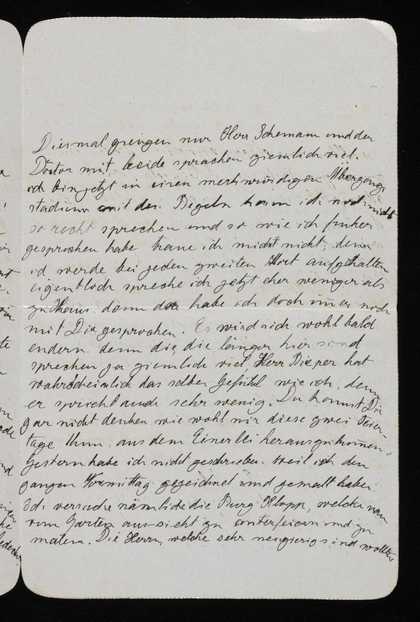 Diesmal giengen nur Herr Schemann und der
Doctor mit, beide sprachen ziemlich viel.
ich bin jetzt in einen merkwürdigen Übergangs
stadium mit den Regeln kann ich noch nicht
so recht sprechen und so wie ich früher
gesprochen habe traue ich mich nicht, denn
ich werde bei jeden zweiten Wort aufgehalten
eigentlich spreche ich jetzt eher weniger als
zuhaus denn da habe ich doch immer noch
mit Dir gesprochen. Es wird sich wohl bald
endern denn die, die länger hier sind
sprechen ja ziemlich viel Herr Dieper hat
wahrscheinlich das selbe Gefühl wie ich, denn
er spricht auch sehr wenig. Du kannst Dir
gar nicht denken wie wohl mir diese zwei Feier-
tage thun, aus dem Einerlei herauszukommen,
Gestern habe ich nicht geschrieben weil ich den
ganzen Vormittag gezeichnet und gemalt habe.
Ich versuche nämlich die Burg Klopp, welche man
vom Garten aus sieht zu conterfeien und zu
malen. Die Herrn, welche sehr neugierig sind wollten